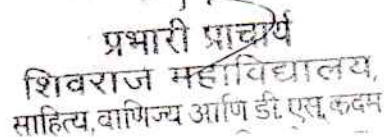 प्रभारी प्राचार्य
शिवराज महाविद्यालय,
साहित्य,वाणिज्य आणि डी. एस. कदम